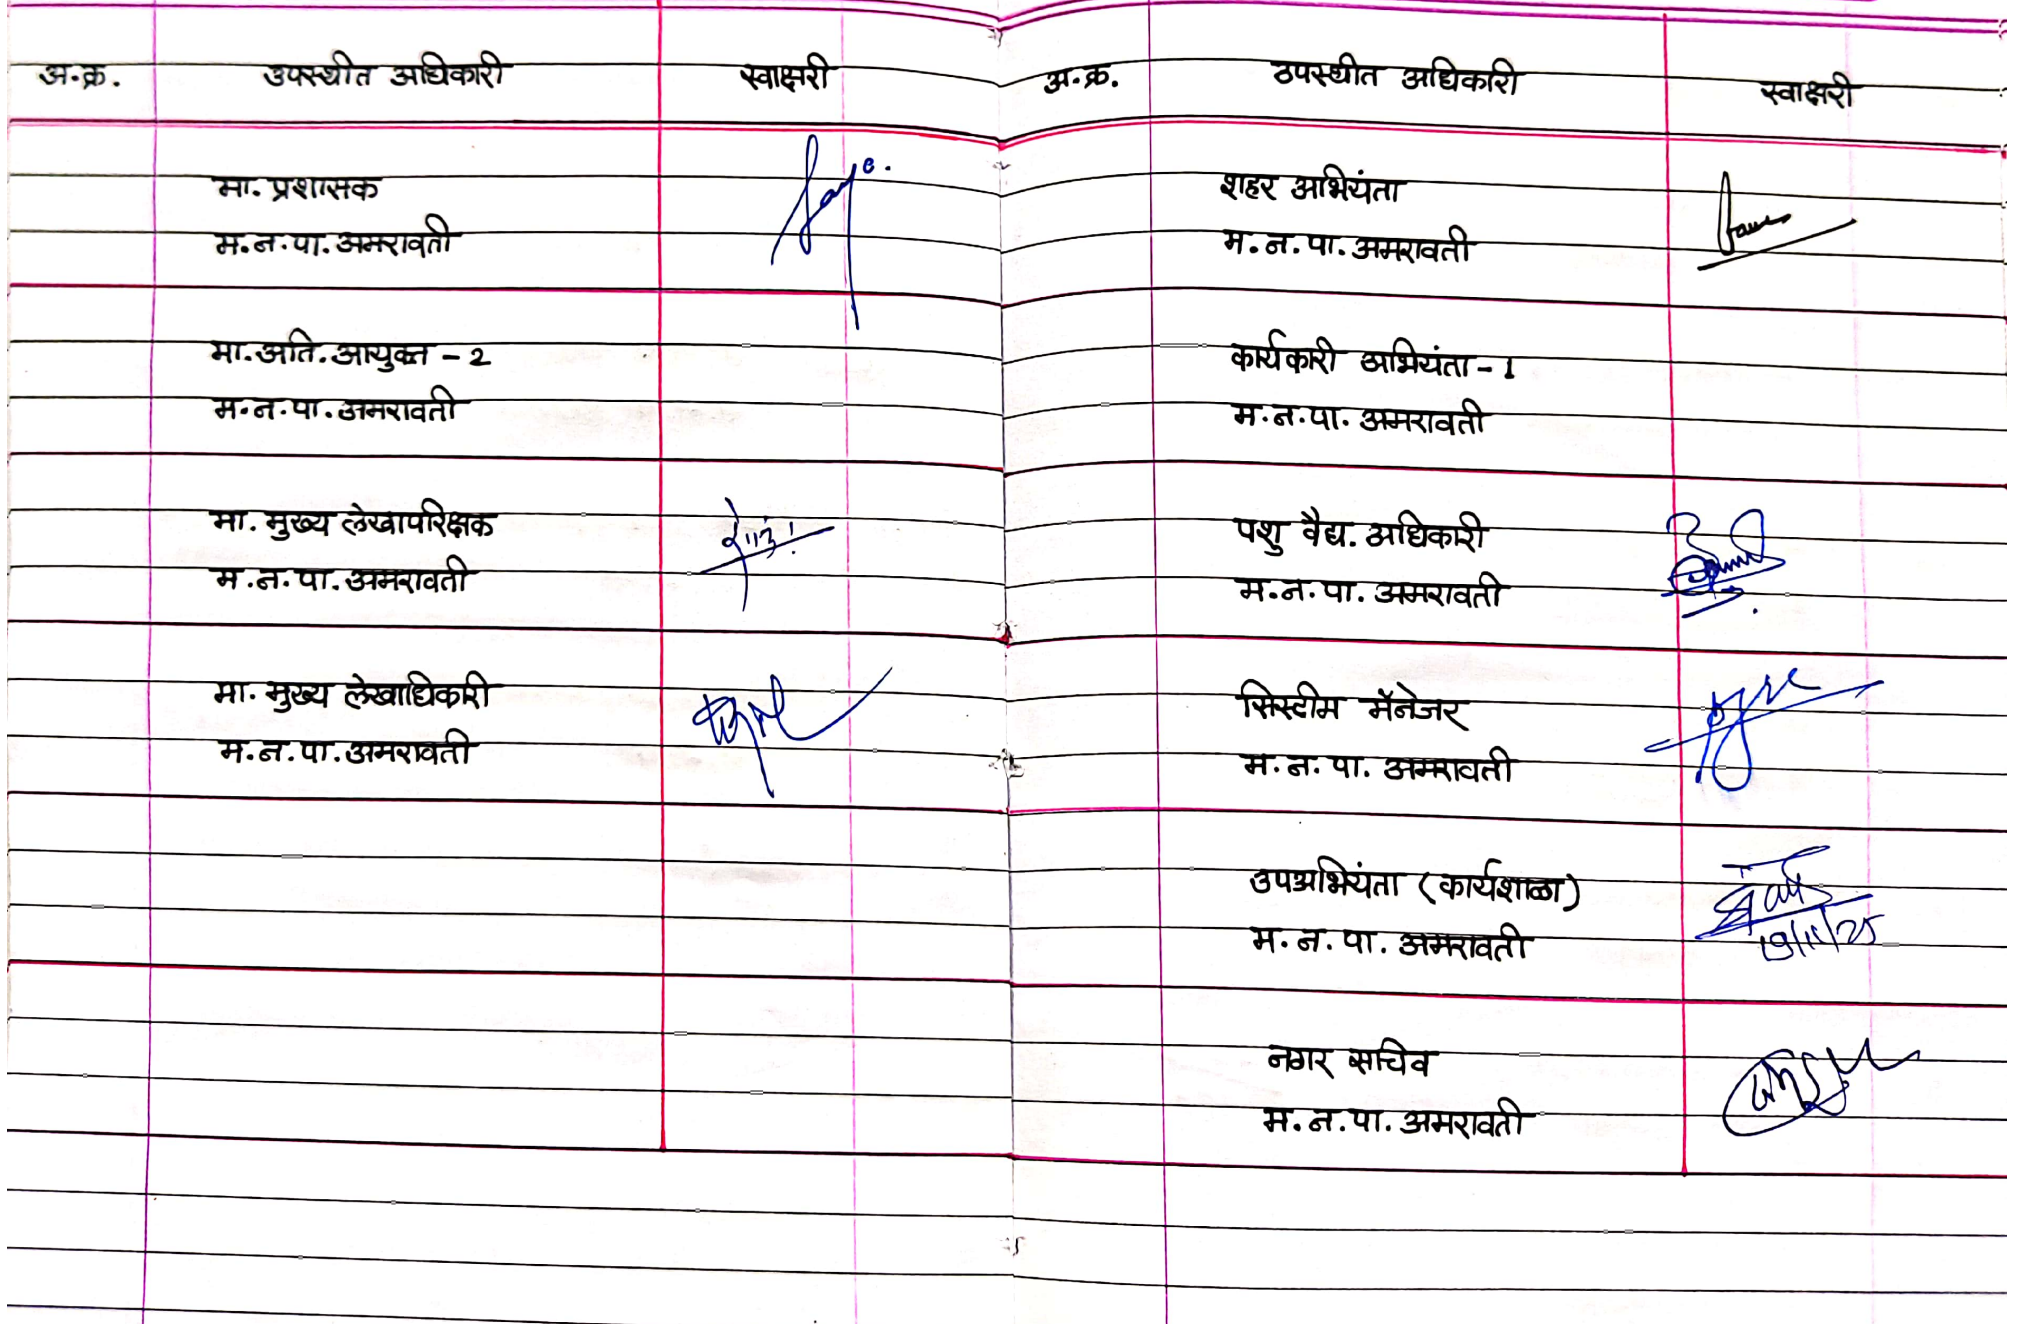 अ.क्र. उपस्थीत अधिकारी स्वाक्षरी
मा. प्रशासक
म.न.पा. अमरावती
मा. अति. आयुक्त - 2
म.न.पा. अमरावती
मा. मुख्य लेखापरिक्षक
म.न.पा. अमरावती
मा. मुख्य लेखाधिकारी
म.न.पा. अमरावती
अ.क्र. उपस्थीत अधिकारी स्वाक्षरी
शहर अभियंता
म.न.पा. अमरावती
कार्यकारी अभियंता - 1
म.न.पा. अमरावती
पशु वैद्य. अधिकारी
म.न.पा. अमरावती
सिस्टीम मॅनेजर
म.न.पा. अमरावती
उपअभियंता (कार्यशाळा)
म.न.पा. अमरावती
19/11/25
नगर सचिव
म.न.पा. अमरावती